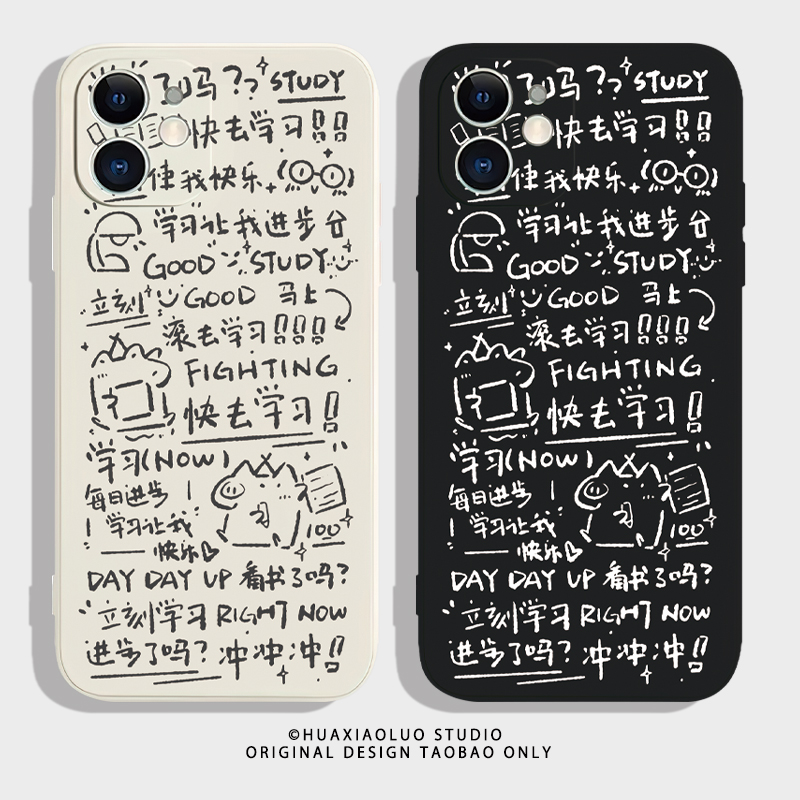 了吗?? STUDY
快去学习!!
使我快乐
学习让我进步
GOOD STUDY
立刻 GOOD 马上
滚去学习!!!
FIGHTING
快去学习!
学习(NOW)
每日进步!
! 学习让我
100
快乐
DAY DAY UP 看书了吗?
立刻学习 RIGHT NOW
进步了吗? 冲冲冲!!
了吗?? STUDY
快去学习!!
使我快乐
学习让我进步
GOOD STUDY
立刻 GOOD 马上
滚去学习!!!
FIGHTING
快去学习!
学习(NOW)
每日进步!
! 学习让我
100
快乐
DAY DAY UP 看书了吗?
立刻学习 RIGHT NOW
进步了吗? 冲冲冲!!
©HUAXIAOLUO STUDIO
ORIGINAL DESIGN TAOBAO ONLY